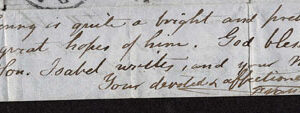 is quite a bright and
great hopes of him. God
Son. Isabel writes, and your
Your devoted & affectiona